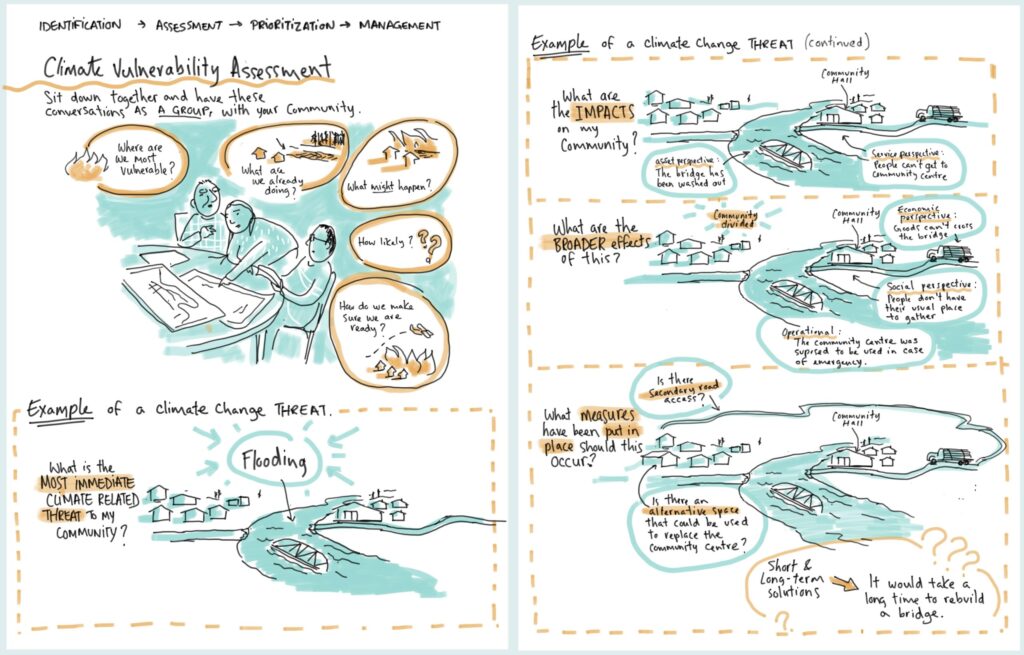 IDENTIFICATION → ASSESSMENT → PRIORITIZATION → MANAGEMENT
Climate Vulnerability Assessment
Sit down together and have these
conversations AS A GROUP, with your community.
Where are
we most
vulnerable?
What are
we already
doing?
What might happen?
How likely? ??
How do we make
sure we are
ready?
Example of a climate change THREAT.
What is the
MOST IMMEDIATE
CLIMATE RELATED
THREAT to my
COMMUNITY?
Flooding
Example of a climate change THREAT (continued)
What are
the IMPACTS
on my
Community?
Community
Hall
asset perspective:
The bridge has
been washed out
Service perspective:
People can't get to
community centre
What are the
BROADER effects
of this?
Community
divided
Community
Hall
Economic
perspective:
Goods can't cross
the bridge
Social perspective:
People don't have
their usual place
to gather
Operational:
The community centre was
suposed to be used in case
of emergency.
What measures
have been put in
place should this
occur?
Is there
secondary road
access?
Community
Hall
Is there an
alternative space
that could be used
to replace the
community centre?
Short &
Long-term
solutions
It would take a
long time to rebuild
a bridge.
????